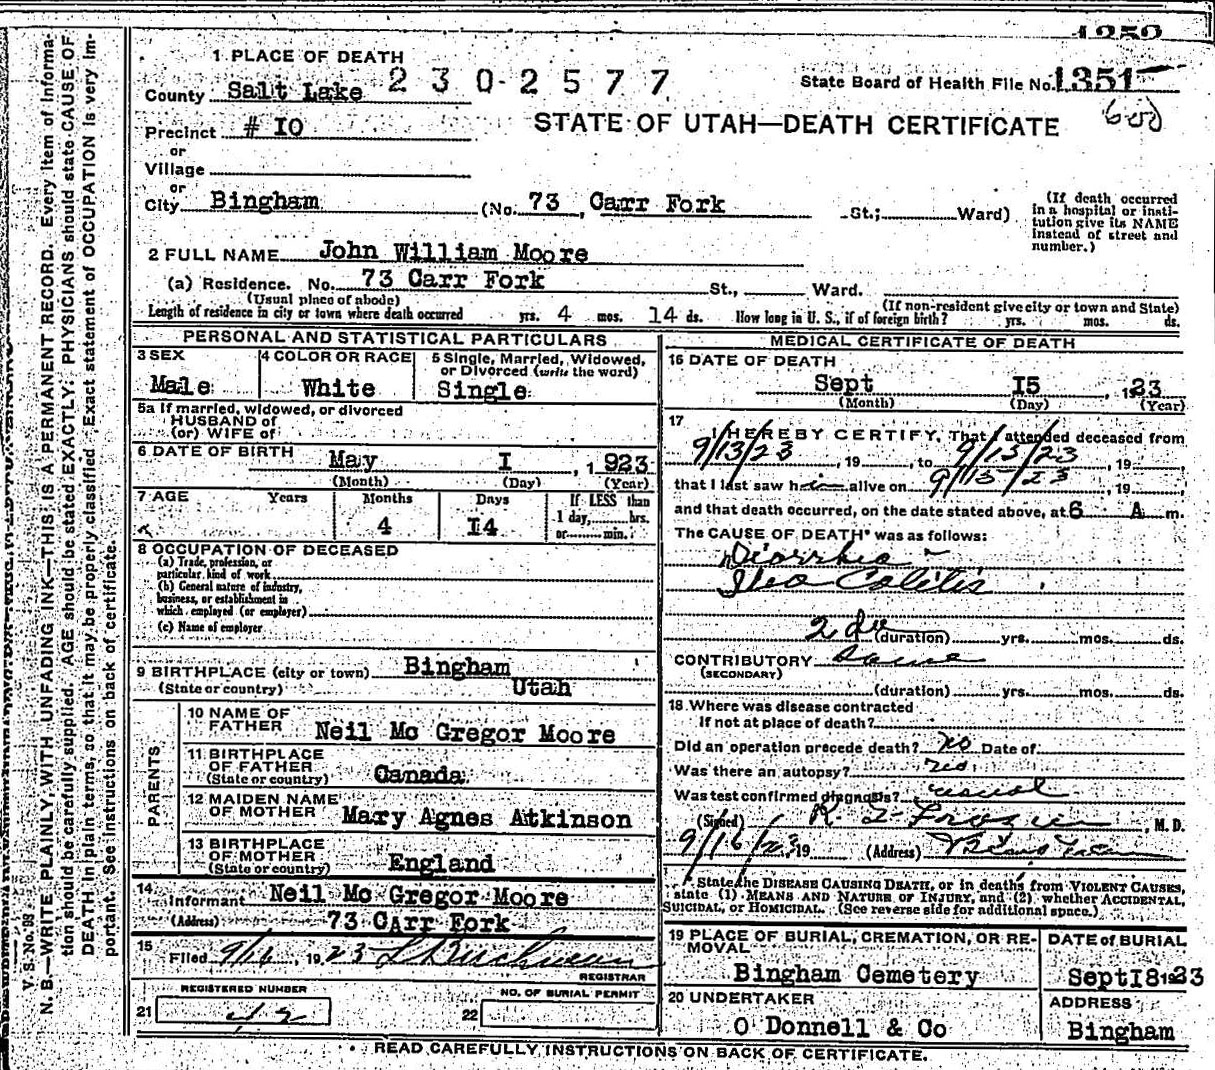 1 PLACE OF DEATH
County Salt Lake 230-2577
State Board of Health File No. 1351
Precinct # IO
600
STATE OF UTAH—DEATH CERTIFICATE
or
Village
or
City Bingham (No. 73, Carr Fork St.; Ward)
(If death occurred in a hospital or insti-
tution give its NAME
instead of street and
number.)
2 FULL NAME John William Moore
(a) Residence. No. 73 Carr Fork St., Ward.
(Usual place of abode) (If non-resident give city or town and State)
Length of residence in city or town where death occurred yrs. 4 mos. 14 ds. How long in U. S., if of foreign birth? yrs. mos. ds.
PERSONAL AND STATISTICAL PARTICULARS
3 SEX
Male
4 COLOR OR RACE
White
5 Single, Married, Widowed,
or Divorced (write the word)
Single
5a If married, widowed, or divorced
HUSBAND of
(or) WIFE of
6 DATE OF BIRTH May I, 1923
(Month) (Day) (Year)
7 AGE Years Months Days If LESS than
4 I4 1 day, hrs.
or min.
8 OCCUPATION OF DECEASED
(a) Trade, profession, or
particular kind of work
(b) General nature of industry,
business, or establishment in
which employed (or employer)
(c) Name of employer
9 BIRTHPLACE (city or town) Bingham
(State or country) Utah
PARENTS
10 NAME OF
FATHER Neil Mc Gregor Moore
11 BIRTHPLACE
OF FATHER
(State or country) Canada
12 MAIDEN NAME
OF MOTHER Mary Agnes Atkinson
13 BIRTHPLACE
OF MOTHER
(State or country) England
14
Informant Neil Mc Gregor Moore
(Address) 73 Carr Fork
15
Filed 9/16, 1923
REGISTRAR
REGISTERED NUMBER
21 42
NO. OF BURIAL PERMIT
22
MEDICAL CERTIFICATE OF DEATH
16 DATE OF DEATH
Sept I5, 1923
(Month) (Day) (Year)
17
I HEREBY CERTIFY, That I attended deceased from
9/13/23, 19, to 9/15/23, 19
that I last saw him alive on 9/15/23, 19
and that death occurred, on the date stated above, at 6 A m.
The CAUSE OF DEATH* was as follows:
Diorrhea –
Ileo Colitis
2 da (duration) yrs. mos. ds.
CONTRIBUTORY Same
(SECONDARY)
(duration) yrs. mos. ds.
18 Where was disease contracted
If not at place of death?
Did an operation precede death? no Date of
Was there an autopsy? no
Was test confirmed diagnosis? usual
(Signed) , M. D.
9/16/23 19 (Address)
* State the DISEASE CAUSING DEATH, or in deaths from VIOLENT CAUSES,
state (1) MEANS AND NATURE OF INJURY, and (2) whether ACCIDENTAL,
SUICIDAL, or HOMICIDAL. (See reverse side for additional space.)
19 PLACE OF BURIAL, CREMATION, OR RE-
MOVAL
Bingham Cemetery
DATE of BURIAL
Sept I8 1923
20 UNDERTAKER
O Donnell & Co
ADDRESS
Bingham
READ CAREFULLY INSTRUCTIONS ON BACK OF CERTIFICATE.
V. S. No. 98
N. B.—WRITE PLAINLY, WITH UNFADING INK—THIS IS A PERMANENT RECORD. Every item of informa-
tion should be carefully supplied. AGE should be stated EXACTLY. PHYSICIANS should state CAUSE OF
DEATH in plain terms, so that it may be properly classified. Exact statement of OCCUPATION is very im-
portant. See instructions on back of certificate.